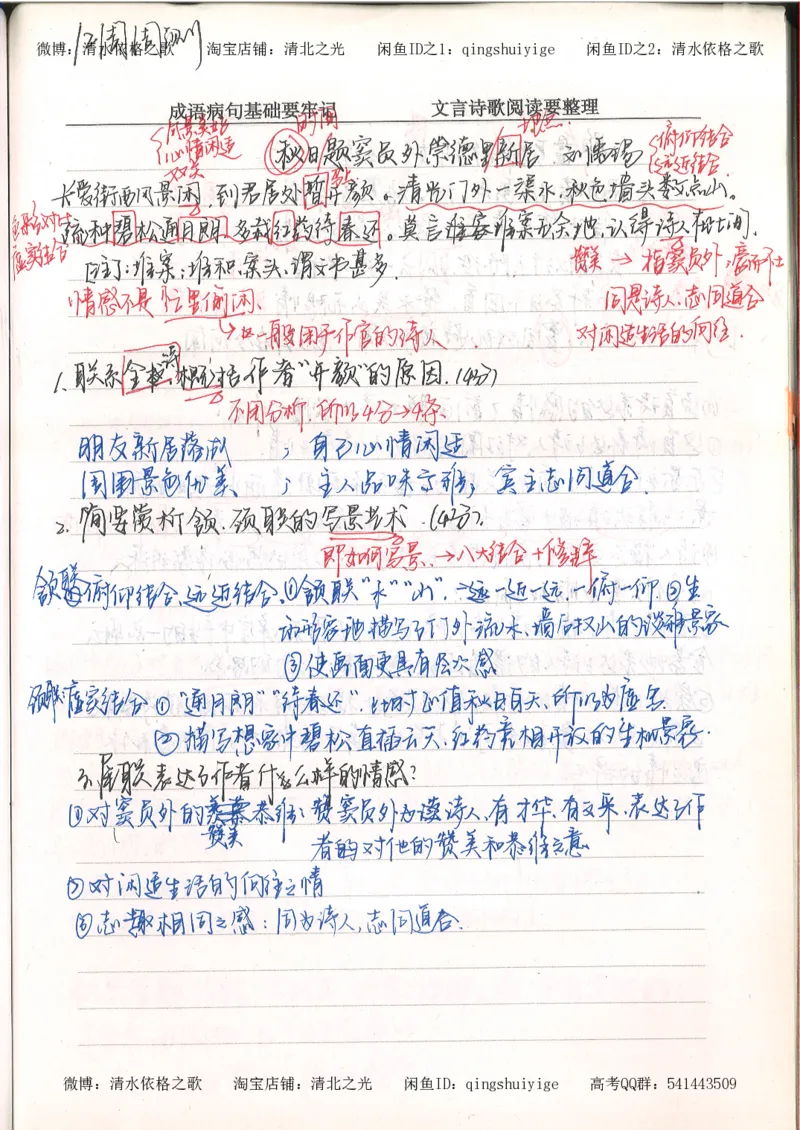 微博：清水依格之歌 淘宝店铺：清北之光 闲鱼ID之1：qingshuiyige 闲鱼ID之2：清水依格之歌
成语病句基础要牢记 文言诗歌阅读要整理
时间 地点
心情闲适
俯仰结合
远近结合
秋日题窦员外崇德里新居 刘禹锡
长爱街西风景闲，到君居处暂开颜。清光门外一渠水，秋色墙头数点山。
疏种碧松通月朗，多栽红药待春还。莫言堆案无余地，认得诗人在此间。
虚实结合
[注]：堆案：堆积案头，谓文书甚多。
赞美→指窦员外，言而不士
情感不是“官场倒闲、
同是诗人，志同道合
→一般用于作官的诗人
对闲适生活的向往.
1.联系全诗概括作者“开颜”的原因.(4分)
不用分析.所以4分→4条
朋友新居落成 ；自己心情闲适
周围景色优美 ；主人品味高雅；宾主志同道合.
2.简要赏析颔、颈联的写景艺术.(4分).
即如何写景.→八大结合+修辞
颔联俯仰结合、远近结合.①颔联“水”“山”，一近一远.一俯一仰.②生
动形象地描写了门外流水、墙后秋山的这种景象
③使画面更具有层次感
颈联虚实结合①“通月朗”“待春还”.此时正值秋日白天、所以为虚写.
②描写想象中碧松直插云天、红药竞相开放的生机景象.
3.尾联表达了作者什么样的情感？
①对窦员外的赞美恭维：赞窦员外为谈诗人、有才华、有文采、表达了作
者的对他的赞美和恭维之意
②对闲适生活的向往之情
③志趣相同之感：同为诗人，志同道合.
微博：清水依格之歌 淘宝店铺：清北之光 闲鱼ID：qingshuiyige 高考QQ群：541443509